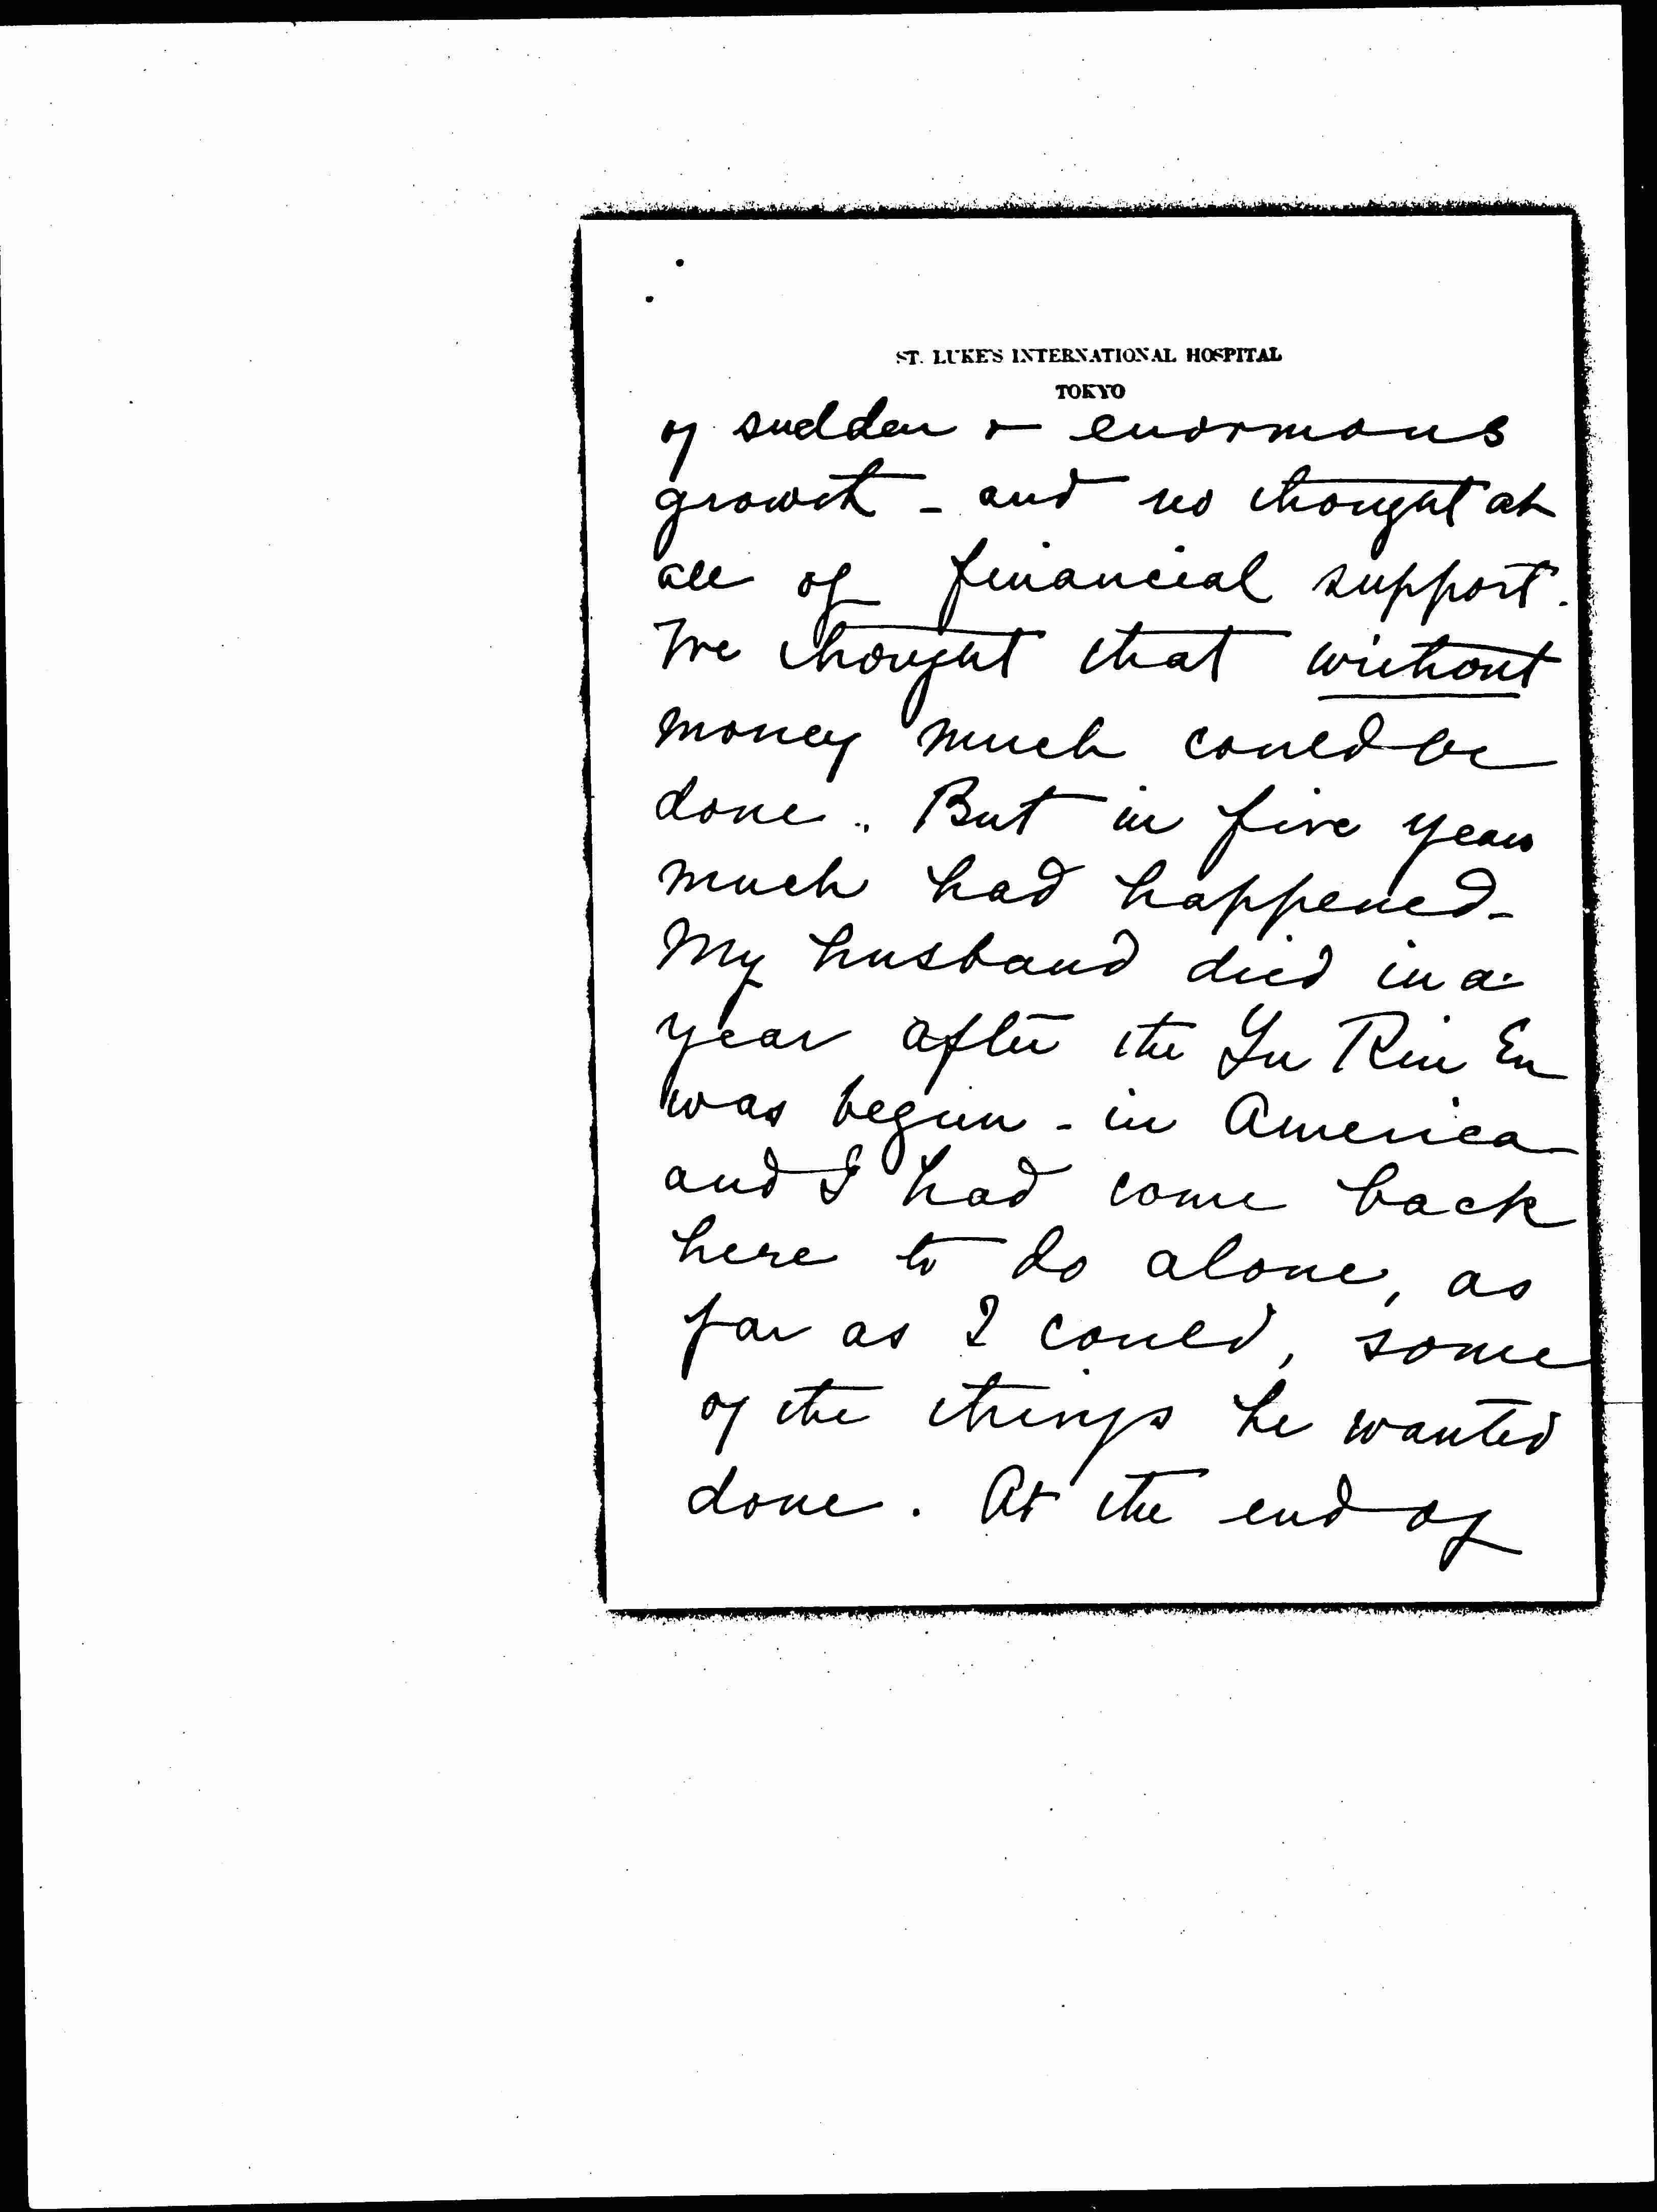 ST. LUKE'S INTERNATIONAL HOSPITAL
TOKYO
of sudden & enormous
growth - and no thought at
all of financial support.
We thought that without
money much could be
done. But in five years
much had happened-
My husband died in a
year after the Yu Rin En
was begun - in America
and I had come back
here to do alone, as
far as I could, some
of the things he wanted
done. At the end of